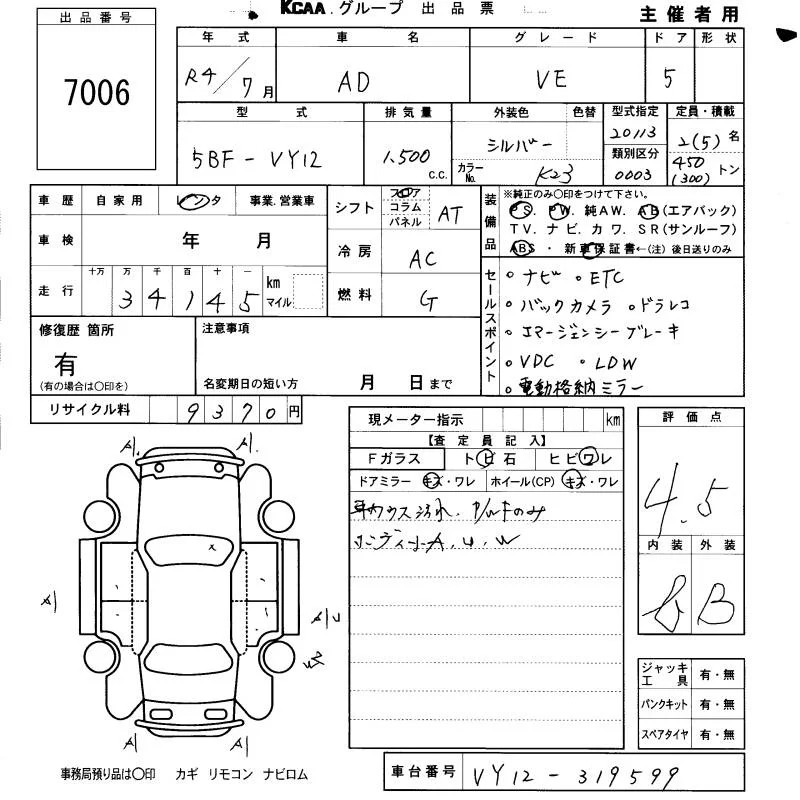 KCAA.グループ 出品票
主催者用
出品番号
7006
年式 車名 グレード ドア 形状
R4/7月 AD VE 5
型式 排気量 外装色 色替 型式指定 定員・積載
5BF-VY12 1,500 c.c. シルバー カラーNo. K23 20113 2(5)名
類別区分 0003 450(300)トン
車歴 自家用 レンタ 事業.営業車
車検 年 月
走行 十万 万 千 百 十 一
3 4 1 4 5 km マイル
シフト フロア コラム パネル AT
冷房 AC
燃料 G
装備品
※純正のみ〇印をつけて下さい。
PS. PW. 純AW. AB(エアバック)
TV. ナビ. カワ. SR(サンルーフ)
ABS ・ 新車保証書←(注)後日送りのみ
セールスポイント
・ナビ ・ETC
・バックカメラ ・ドラレコ
・エマージェンシーブレーキ
・VDC ・LDW
・電動格納ミラー
修復歴 箇所
有
(有の場合は〇印を)
注意事項
名変期日の短い方 月 日まで
リサイクル料 9370円
現メーター指示 km
【査定員記入】
Fガラス トビ石 ヒビワレ
ドアミラー キズ・ワレ ホイール(CP) キズ・ワレ
汚れ. P/WFのみ
A, U, W
評価点
4.5
内装 外装
B
ジャッキ工具 有・無
パンクキット 有・無
スペアタイヤ 有・無
A1 A1
A1
A1
A1 A1
事務局預り品は〇印 カギ リモコン ナビロム
車台番号 VY12-319599